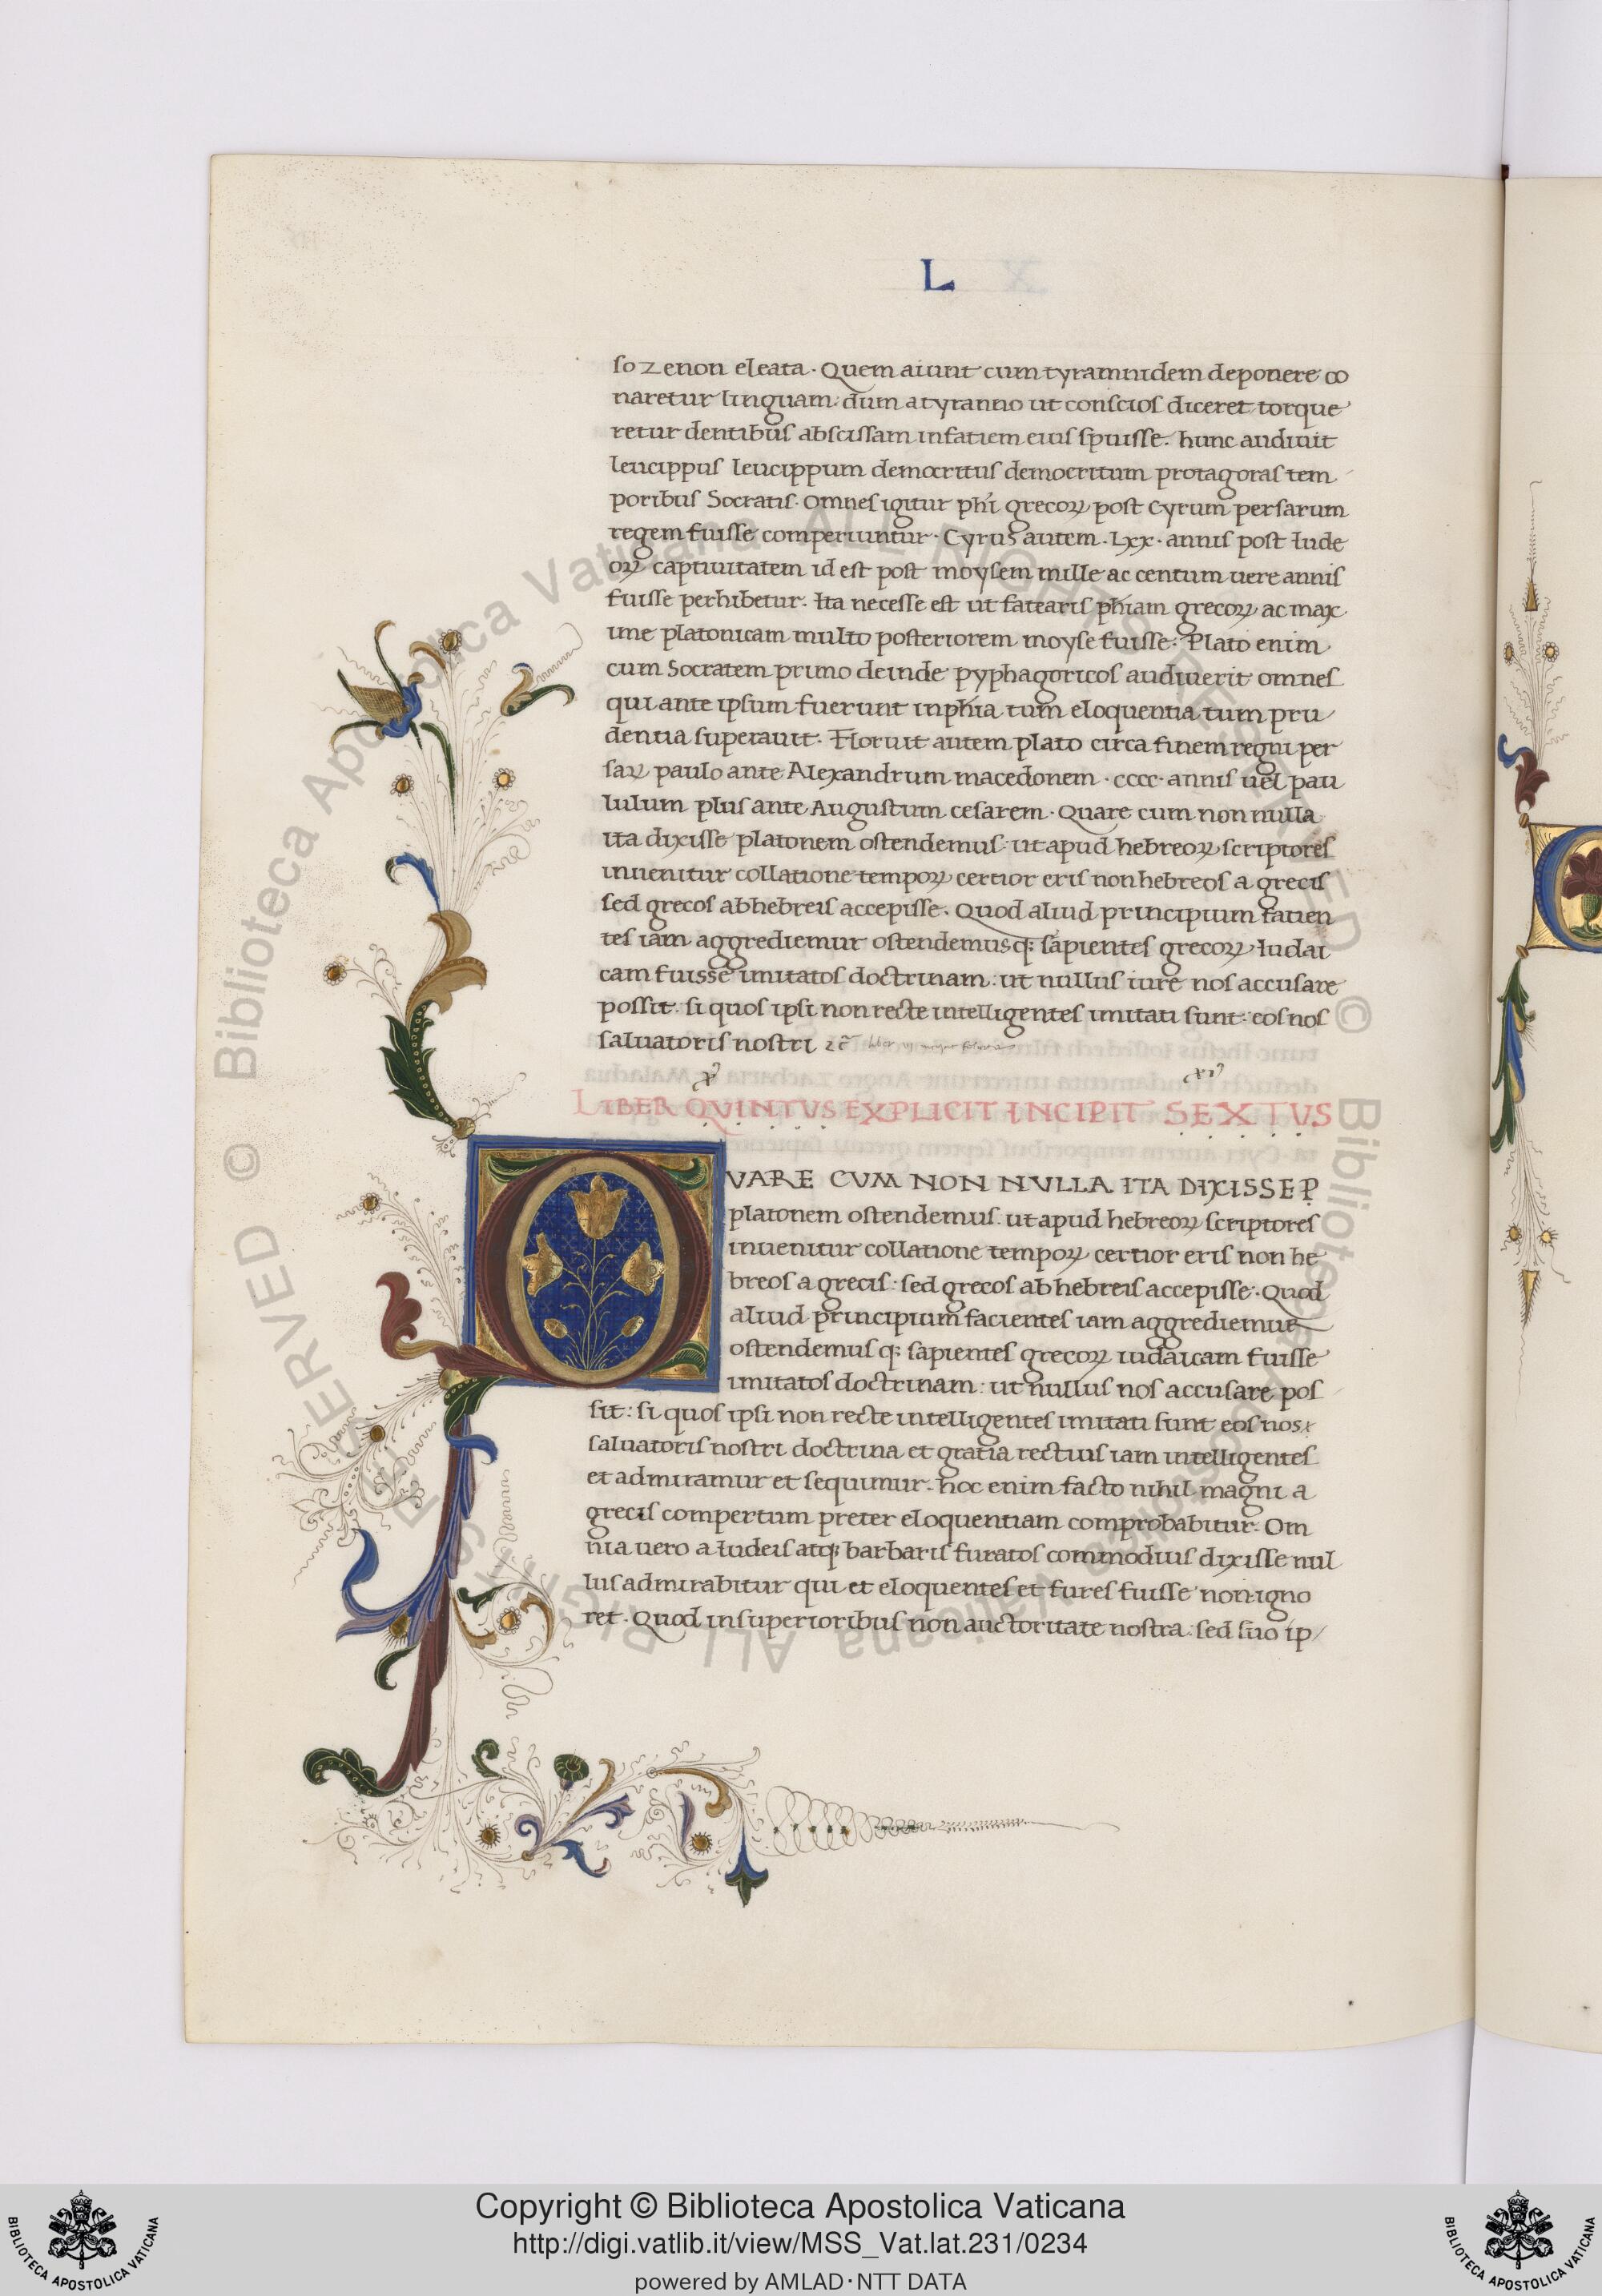 L
so zenon eleata. Quem aiunt cum tyramnidem deponere co
naretur linguam: dum a tyranno ut conscios diceret torque
retur dentibus abscissam in fatiem eius spuisse. hunc audiuit
leucippus leucippum democritus democritum protagoras tem
poribus Socratis. Omnes igitur phi grecoꝝ post Cyrum persarum
regem fuisse comperiuntur. Cyrus autem .Lxx. annis post Iude
oꝝ captiuitatem id est post moysem mille ac centum uere annis
fuisse perhibetur. Ita necesse est ut fatearis phiam grecoꝝ ac max
ime platonicam multo posteriorem moyse fuisse: Plato enim
cum Socratem primo deinde pyphagoricos audiuerit omnes
qui ante ipsum fuerunt in phia tum eloquentia tum pru
dentia superauit. Floruit autem plato circa finem regni per
saꝝ paulo ante Alexandrum macedonem .cccc. annis uel pau
lulum plus ante Augustum cesarem. Quare cum non nulla
ita dixisse platonem ostendemus: ut apud hebreoꝝ scriptores
inuenitur collatione tempoꝝ certior eris non hebreos a grecis
sed grecos ab hebreis accepisse. Quod aliud principium facien
tes iam aggrediemur ostendemusqꝫ sapientes grecoꝝ Iudai
cam fuisse imitatos doctrinam: ut nullus iure nos accusare
possit: si quos ipsi non recte intelligentes imitati sunt: eos nos
saluatoris nostri
LIBER QVINTVS EXPLICIT INCIPIT SEXTVS
QVARE CVM NON NVLLA ITA DIXISSE P
platonem ostendemus: ut apud hebreoꝝ scriptores
inuenitur collatione tempoꝝ certior eris non he
breos a grecis: sed grecos ab hebreis accepisse. Quod
aliud principium facientes iam aggrediemur
ostendemus qꝫ sapientes grecoꝝ iudaicam fuisse
imitatos doctrinam: ut nullus nos accusare pos
sit: si quos ipsi non recte intelligentes imitati sunt eos nos
saluatoris nostri doctrina et gratia rectius iam intelligentes
et admiramur et sequimur. hoc enim facto nihil magni a
grecis compertum preter eloquentiam comprobabitur. Om
nia uero a Iudeis atqꝫ barbaris furatos commodius dixisse nul
lus admirabitur qui et eloquentes et fures fuisse non igno
ret. Quod in superioribus non auctoritate nostra: sed suo ip
© Biblioteca Apostolica Vaticana ALL RIGHTS RESERVED
Copyright © Biblioteca Apostolica Vaticana
http://digi.vatlib.it/view/MSS_Vat.lat.231/0234
powered by AMLAD·NTT DATA
BIBLIOTECA APOSTOLICA VATICANA
BIBLIOTECA APOSTOLICA VATICANA